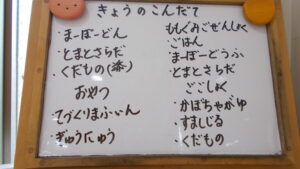 きょうのこんだて
・まーぼーどん
・とまとさらだ
・くだもの
おやつ
てづくりまふぃん
・ぎゅうにゅう
ももぐみごぜんしょく
・ごはん
・まーぼーどうふ
・とまとさらだ
ごごしょく
・かぼちゃがゆ
・すましじる
・くだもの